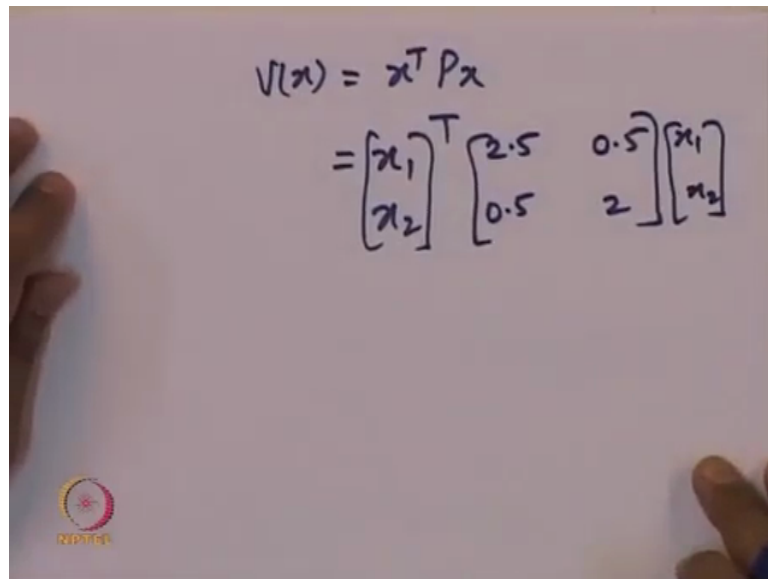 V(x) = xᵀ Px
= [x₁ x₂]ᵀ [2.5 0.5 0.5 2] [x₁ x₂]
NPTEL